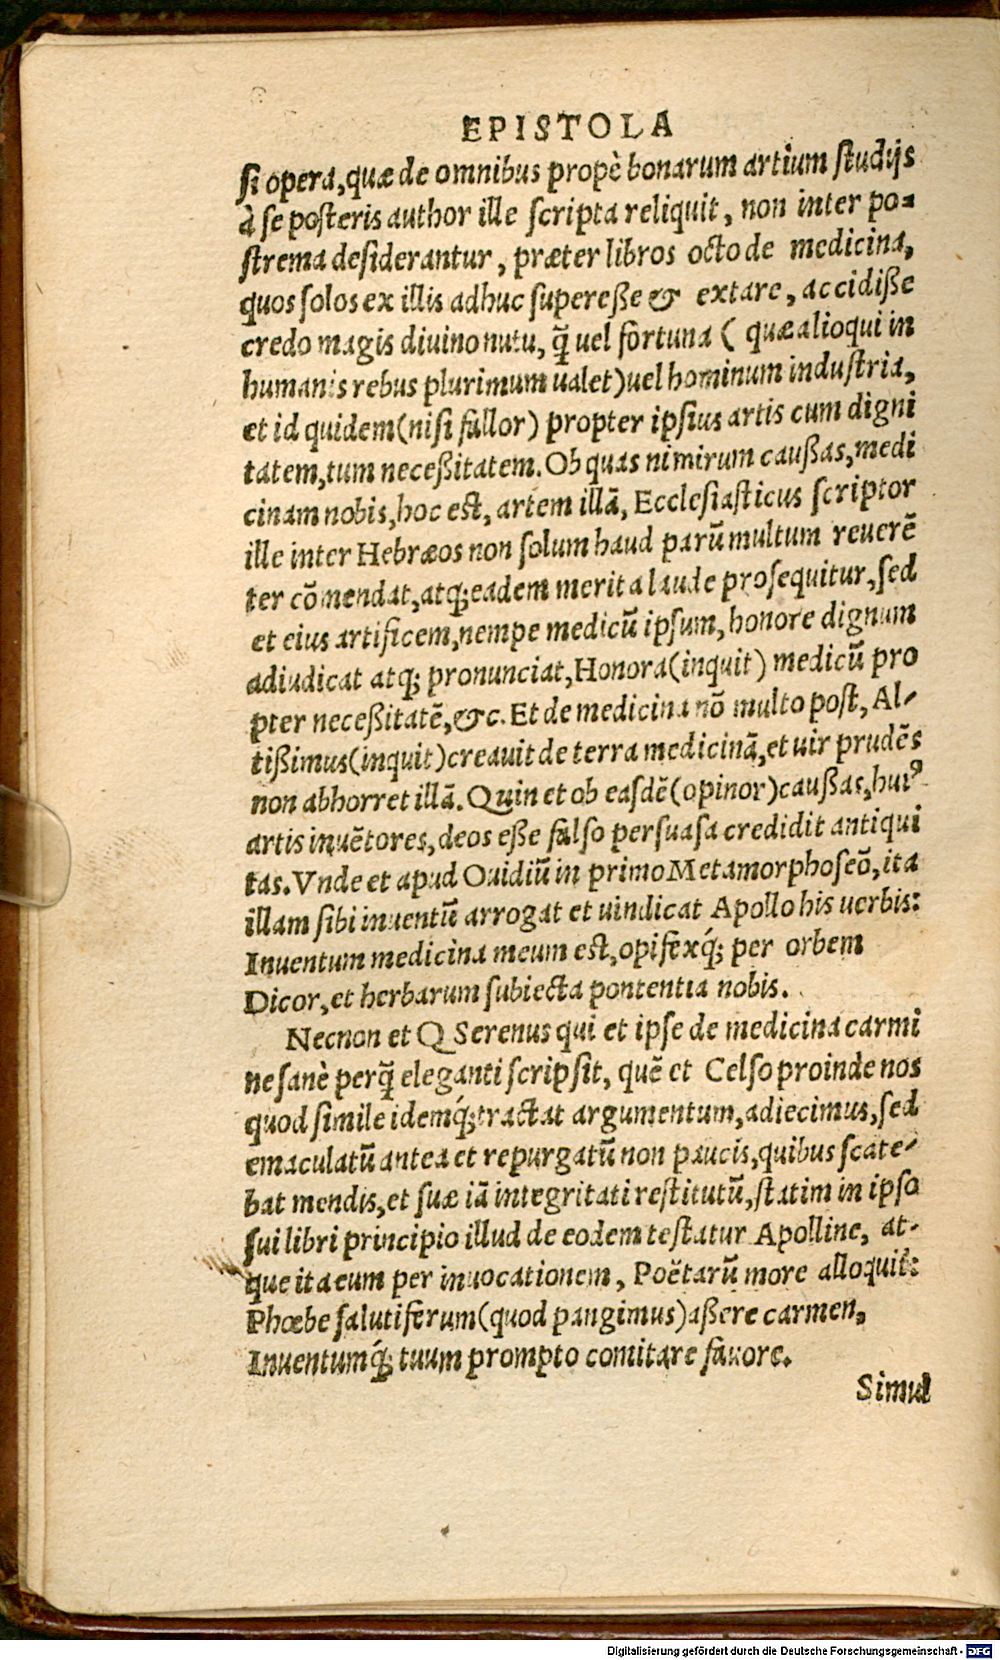 EPISTOLA
si opera, quæ de omnibus propè bonarum artium studijs
à se posteris author ille scripta reliquit, non inter po-
strema desiderantur, præter libros octo de medicina,
quos solos ex illis adhuc superesse & extare, accidisse
credo magis diuino nutu, q̃ uel fortuna ( quæ alioqui in
humanis rebus plurimum ualet) uel hominum industria,
et id quidem (nisi fallor) propter ipsius artis cum digni
tatem, tum necessitatem. Ob quas nimirum caussas, medi
cinam nobis, hoc est, artem illā, Ecclesiasticus scriptor
ille inter Hebræos non solum haud parū multum reuerē
ter cōmendat, atq; eadem merita laude prosequitur, sed
et eius artificem, nempe medicū ipsum, honore dignum
adiudicat atq; pronunciat, Honora (inquit) medicū pro
pter necessitatē, &c. Et de medicina nō multo post, Al-
tissimus (inquit) creauit de terra medicinā, et uir prudēs
non abhorret illā. Quin et ob easdē (opinor) caussas, huiꝰ
artis inuētores, deos esse falso persuasa credidit antiqui
tas. Vnde et apud Ouidiū in primo Metamorphoseō, ita
illam sibi inuentū arrogat et uindicat Apollo his uerbis:
Inuentum medicina meum est, opifexq́; per orbem
Dicor, et herbarum subiecta pontentia nobis.
Necnon et Q Serenus qui et ipse de medicina carmi
ne sanè perq̃ eleganti scripsit, quē et Celso proinde nos
quod simile idemq́; tractat argumentum, adiecimus, sed
emaculatū antea et repurgatū non paucis, quibus scate-
bat mendis, et suæ iā integritati restitutū, statim in ipso
sui libri principio illud de eodem testatur Apolline, at-
que ita eum per inuocationem, Poëtarū more alloquit:
Phœbe salutiferum (quod pangimus) assere carmen,
Inuentumq́; tuum prompto comitare fauore.
Simul
Digitalisierung gefördert durch die Deutsche Forschungsgemeinschaft - DFG